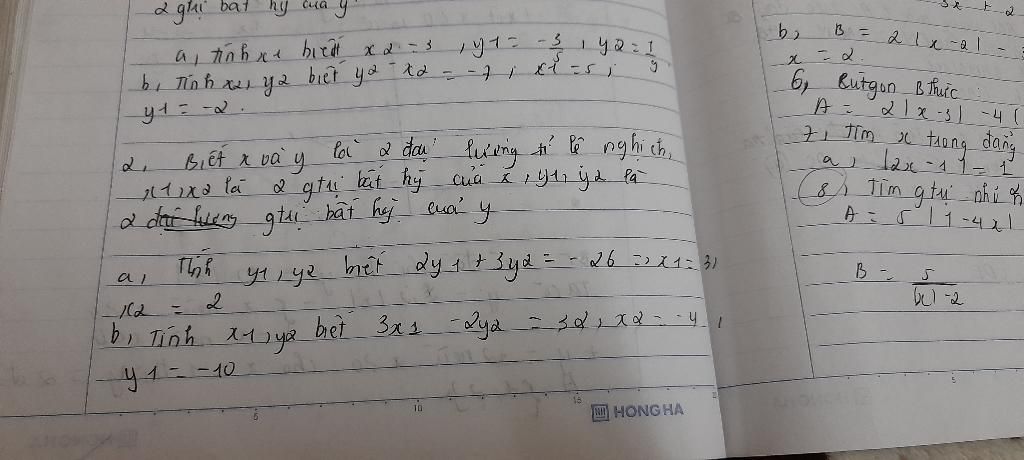 2 gtrị bất kỳ của y
a, tính x1 biết x2 = 3, y1 = -3/5, y2 = 1/9
b, Tính x2, y2 biết y2 - x2 = -7, x1 = 5,
y1 = -2.
2, Biết x và y là 2 đại lượng tỉ lệ nghịch,
x1, x2 là 2 gtrị bất kỳ của x, y1, y2 là
2 gtrị bất kỳ của y
a, Tính y1, y2 biết 2y1 + 3y2 = -26 => x1 = 3,
x2 = 2
b, Tính x1, y2 biết 3x1 - 2y2 = 32, x2 = -4,
y1 = -10
HONG HA
3x + 2
b, B = 2|x-2| -
x = 2.
6, Rutgon B thức
A = 2|x-3| - 4(
7, Tìm x trong đẳng
a, |2x-1| = 1
8, Tìm gtrị nhỏ
A = 5|1-4x|
B = 5/|x|-2